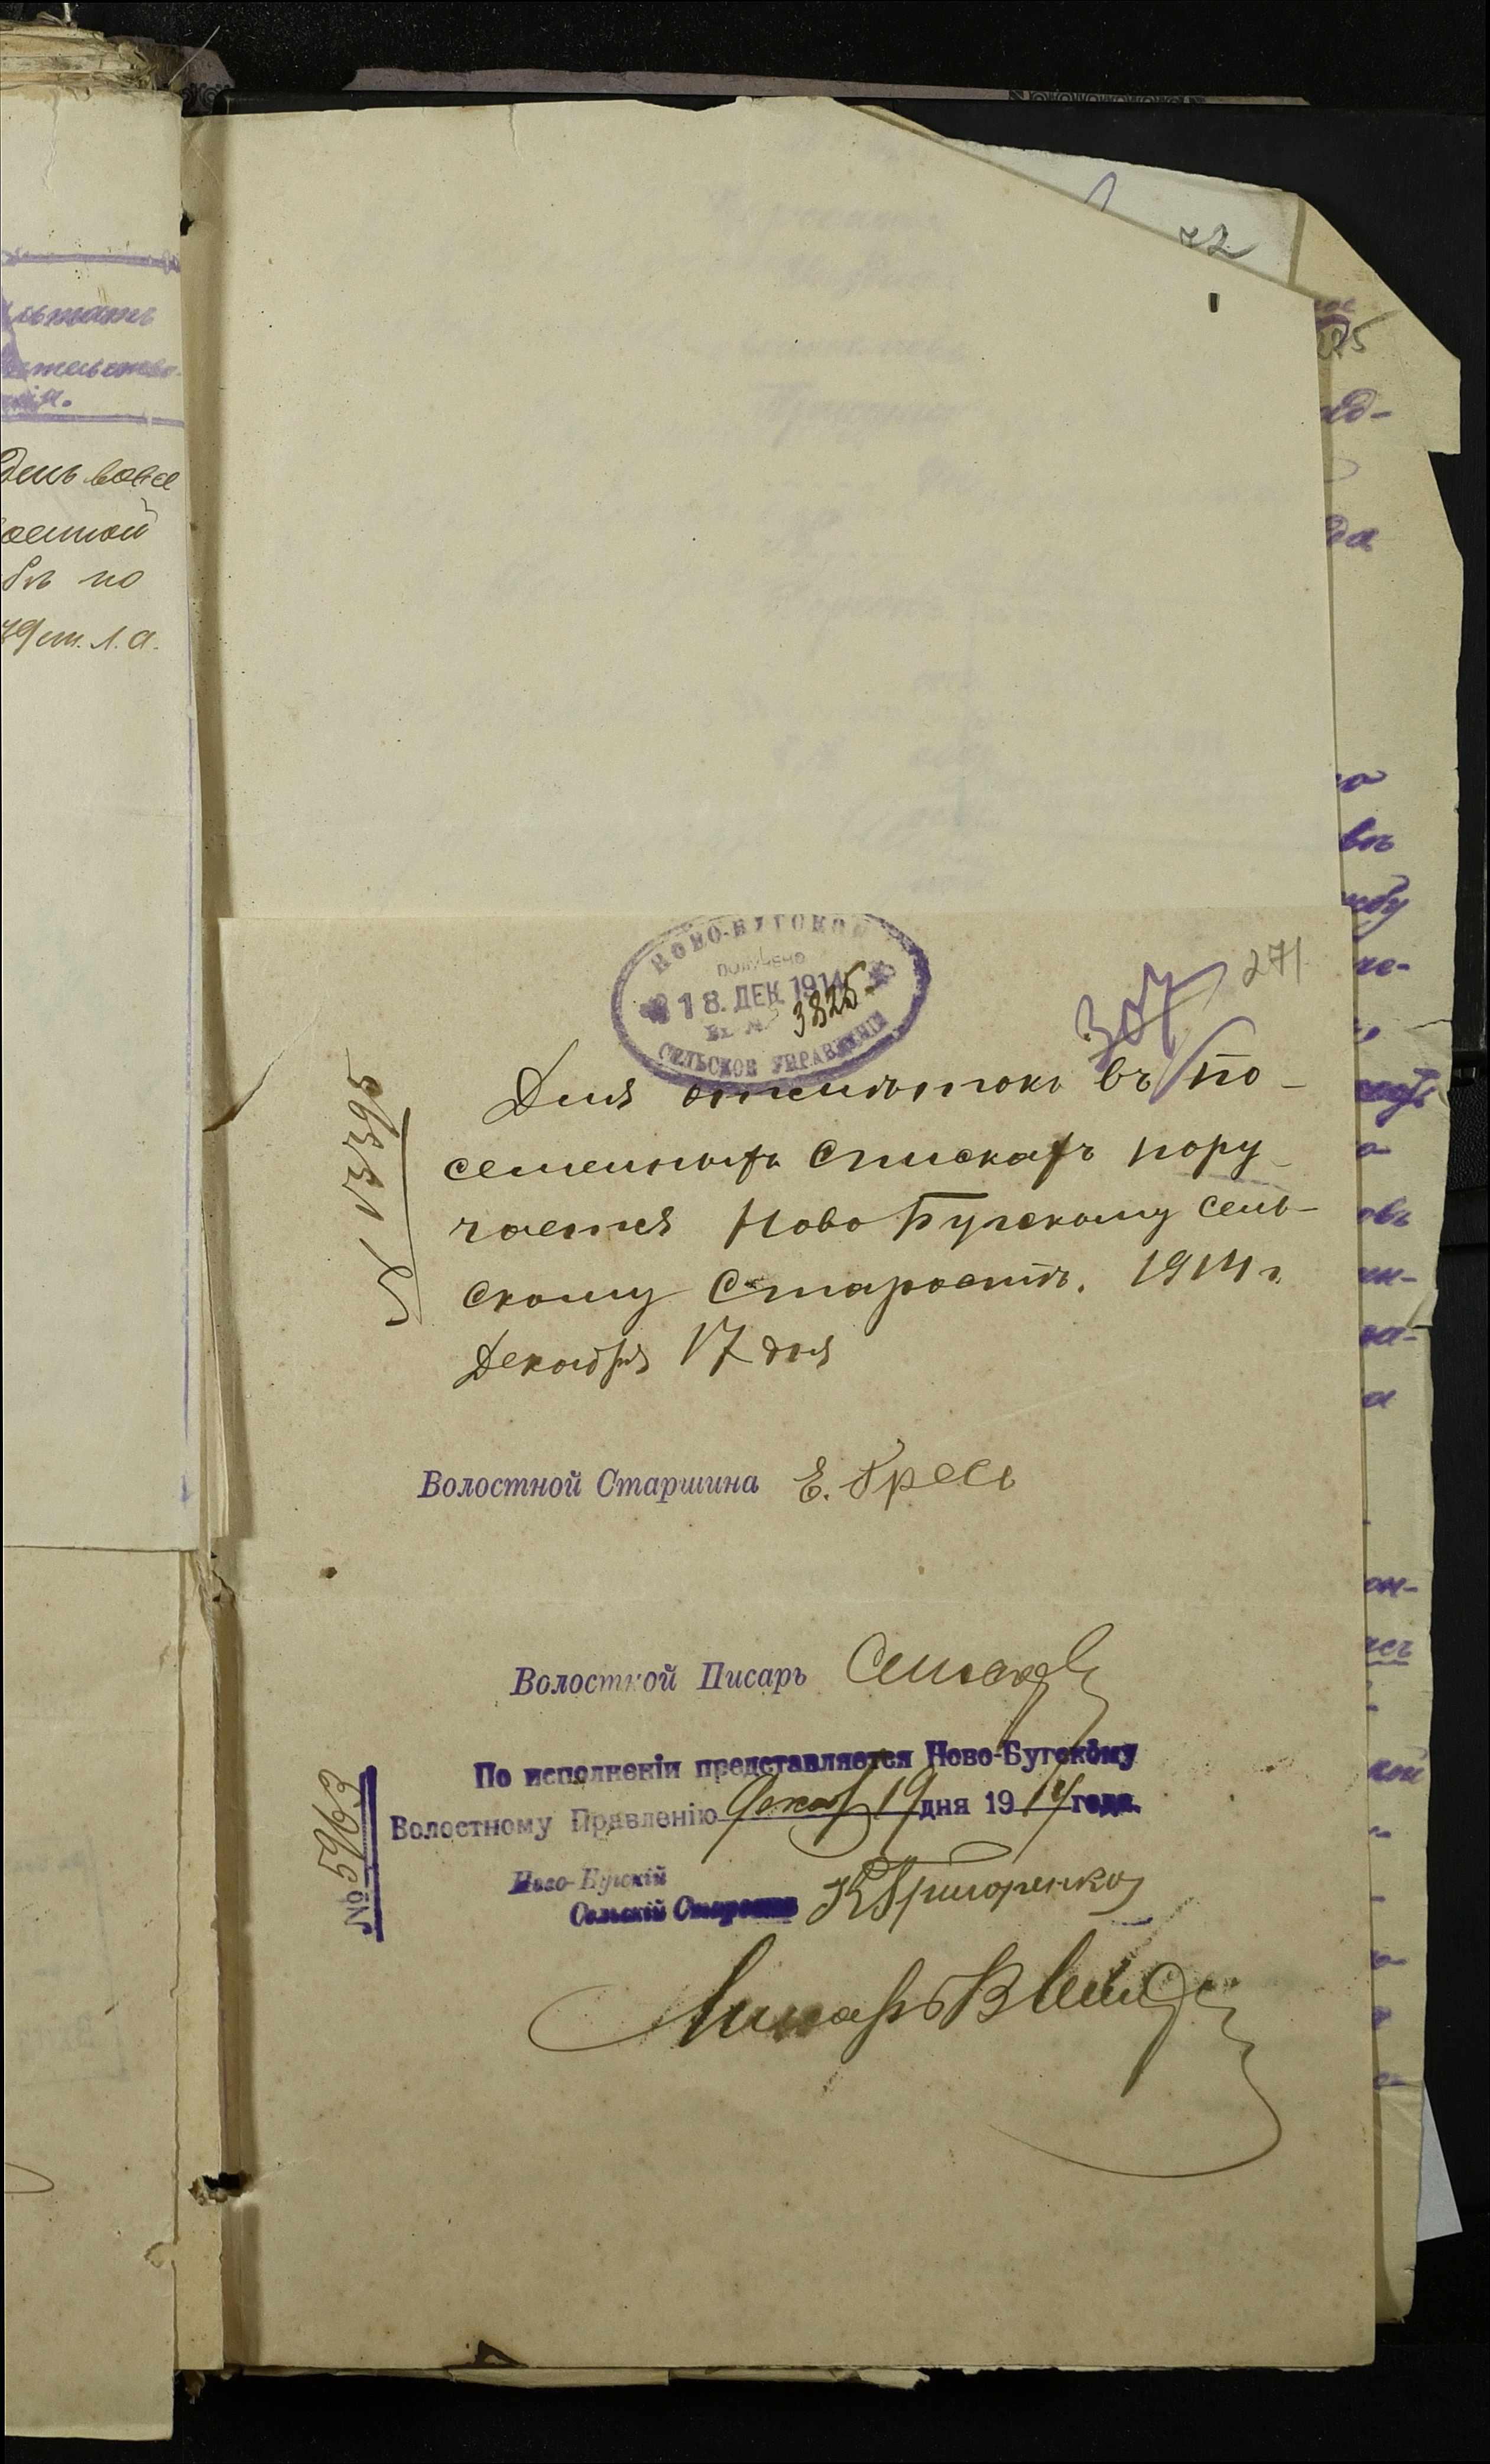 72
льтатъ
275
НОВО-БУГСКОЕ
ПОЛУЧЕНО
18. ДЕК. 1914
Вх. № 3825
СЕЛЬСКОЕ УПРАВЛЕНІЕ
307
271
№ 13395
Для отмѣтокъ въ по-
семейныхъ спискахъ пору-
чается Ново Бугскому сель-
скому Старостѣ. 1914 г.
Декабря 17 дня
Волостной Старшина Е. Гресь
Волостной Писарь
По исполненіи представляется Ново-Бугскому
Волостному Правленію Декаб 19 дня 1914 года.
№ 5963
Ново-Бугскій
Сельскій Староста К Григоренко
Писарь
день вове
военной
бѣ по
79 ст. л. а.